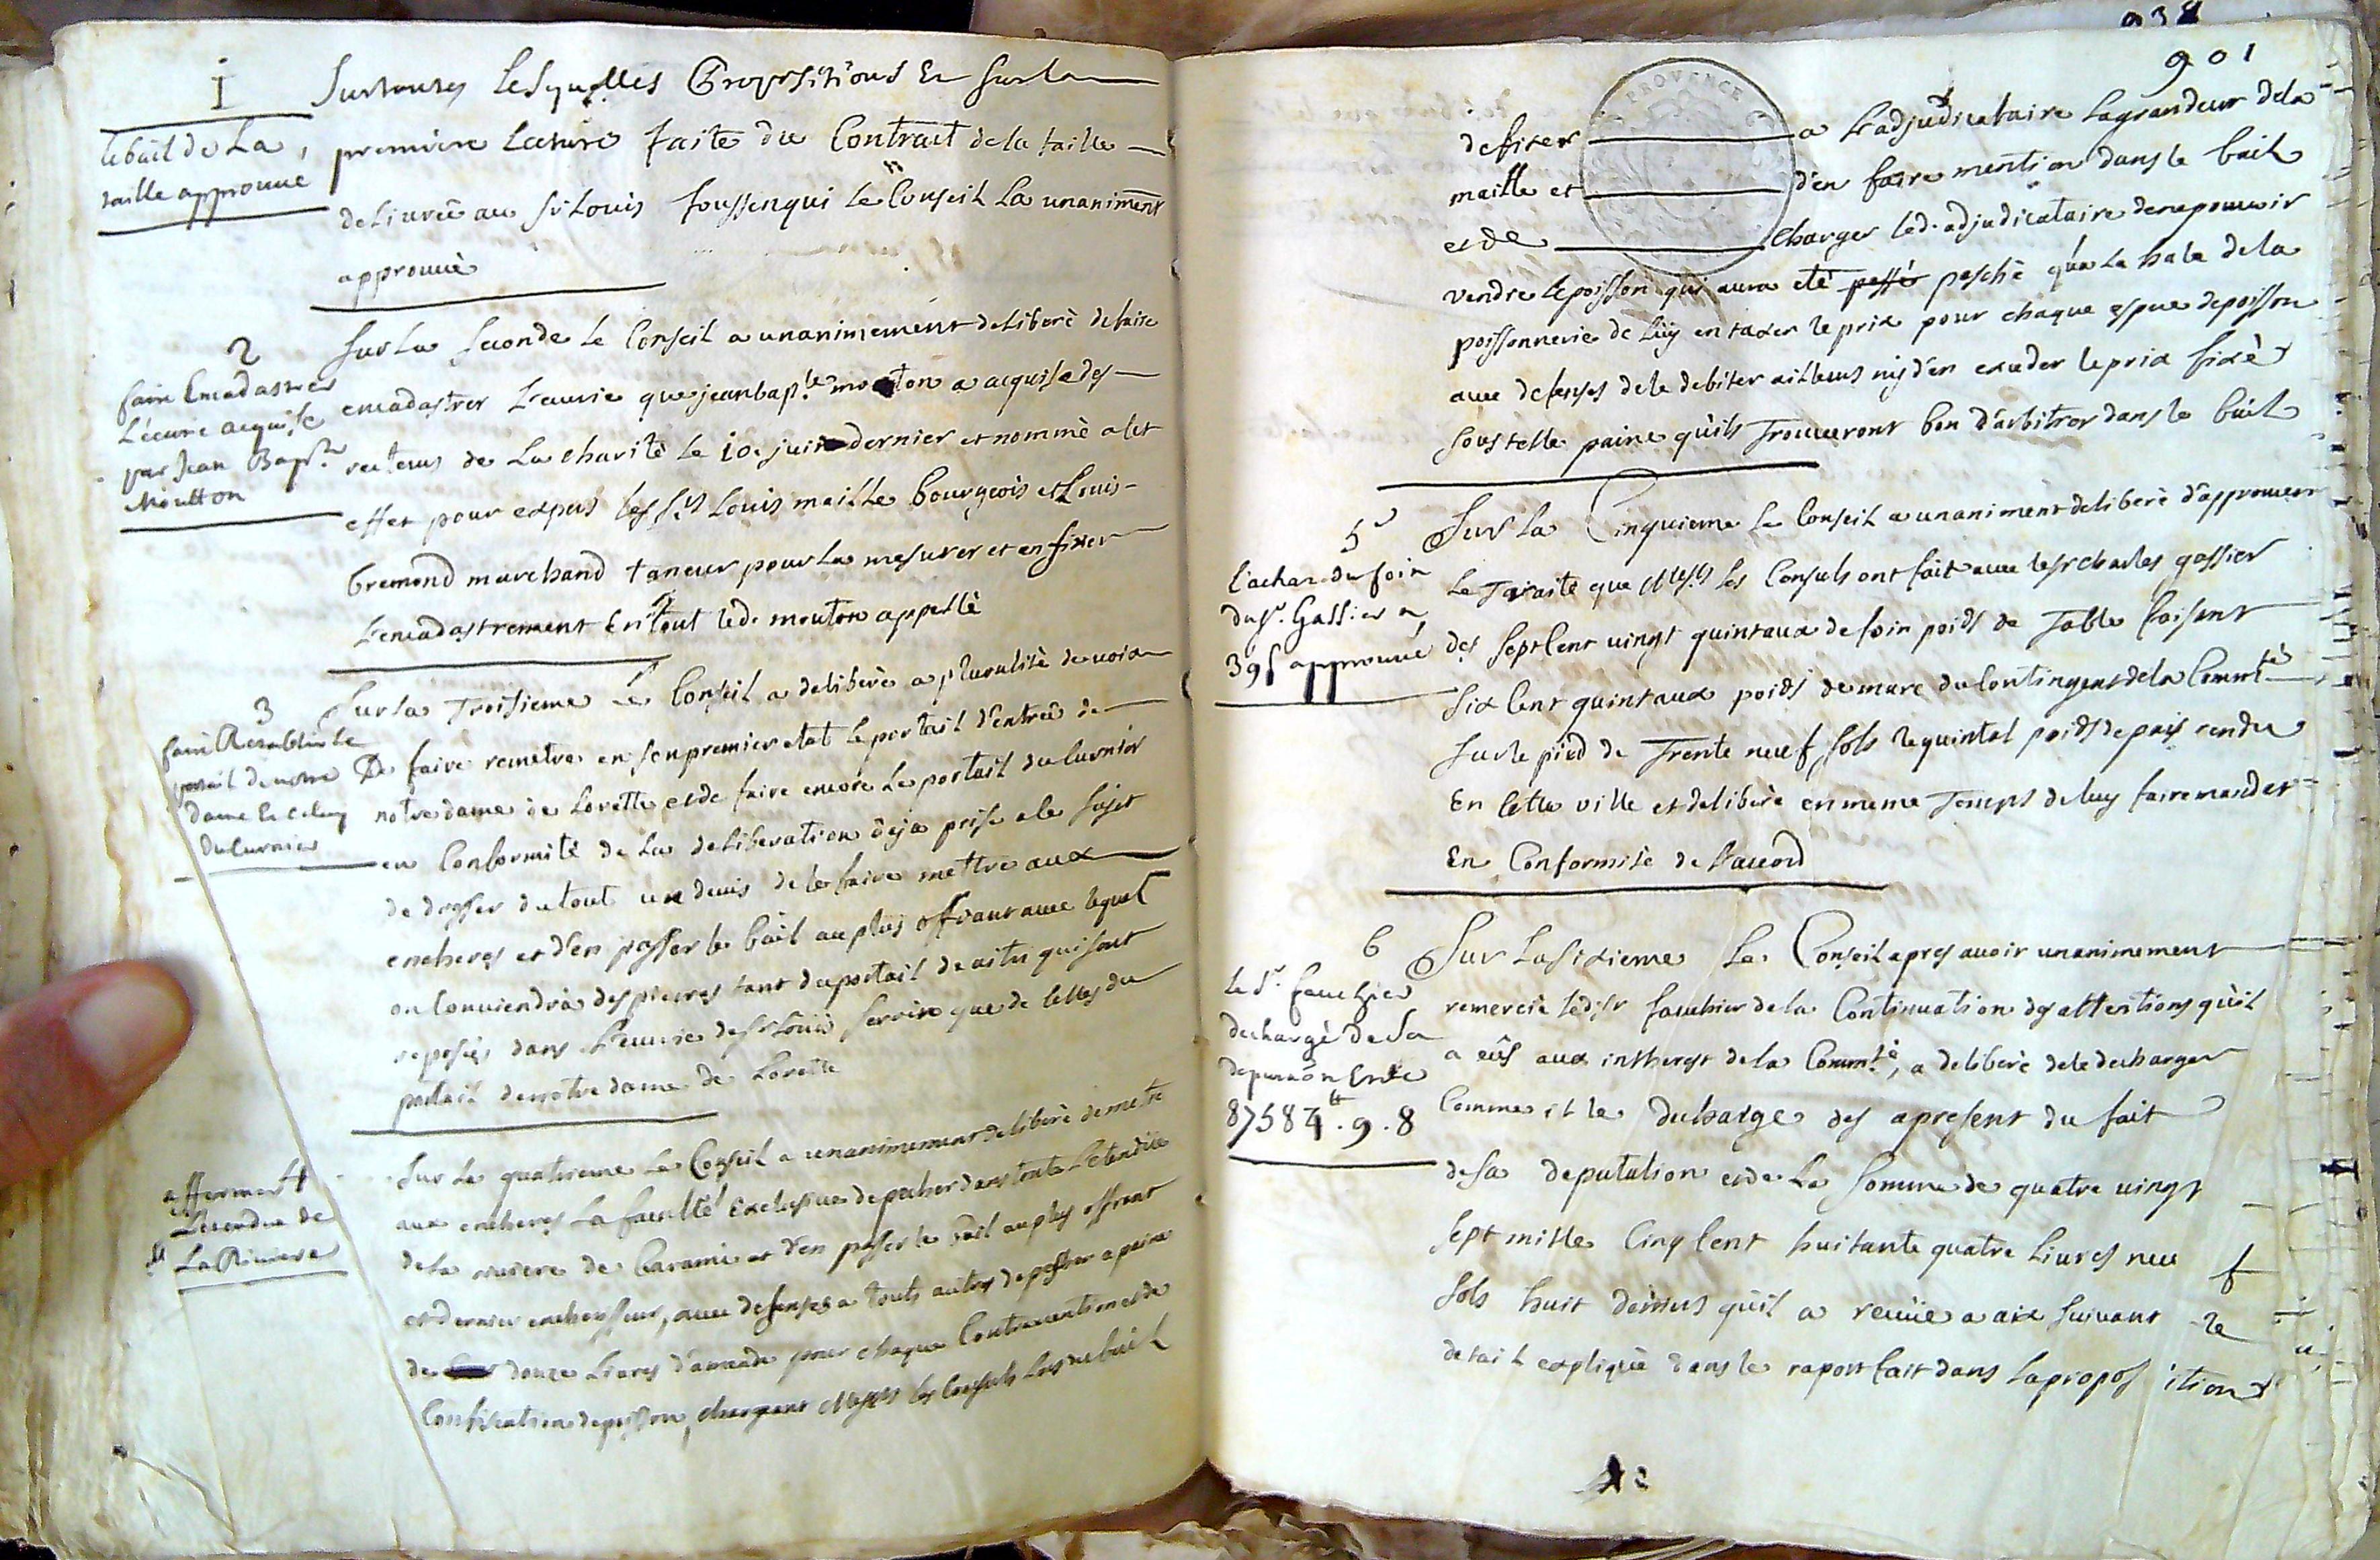 1
le bail de La
taille approuvé
Sur toutes Lesquelles Propositions Et sur la
premiere Lecture faite du Contract de la taille
delivrée au Sr Louis foussenqui Le Conseil La unanimemt
approuvé
2
faire Encadastrer
L'écurie acquise
par Jean Bapte
Moutton
Sur La seconde Le Conseil a unanimement deliberé de faire
encadastrer L'ecurie que jean bapte mouton a acquise des
recteurs de La charité le 10e juin dernier et nommé a cet
effet pour expers les Srs Louis maille bourgeois et Louis
bremond marchand taneur pour La mesurer et en fixer
L'encadastrement En tout led. mouton appellé
3
faire Retablir le
portail de notre
Dame Et celuy
du Curnier
Sur la Troisieme Le Conseil a deliberé a pluralité de voix
De faire remetre en son premier etat le portail d'entrée de
notre dame de Lorette et de faire encore Le portail du Curnier
en Conformité de La deliberation deja prise a le sujet
de dresser du tout un devis de le faire mettre aux
encheres et d'en passer le bail au plus offrant avec lequel
on Conviendra des pierres tant du portail de aitri qui sont
reposées dans L'ecurie de Sr Louis serviere que de celles du
portail de notre dame de Lorette
4
affermer
L'etendue de
La Riviere
Sur La quatrieme Le Conseil a unanimement deliberé de metre
aux encheres La faculté Exclusive de pecher dans toute L'etendüe
de La riviere de Carami et d'en passer le bail au plus offrant
et dernier encherisseur, avec defenses a touts autres de pescher a peine
de douze Livres d'amande pour chaque Contravention et de
Confiscation de poisson, chargeant Messrs les Consuls Lors du bail
901
PROVENCE
de fixer a L'adjudicataire La grandeur de la
maille et d'en faire mention dans le bail
et de Charger led. adjudicataire de ne pouvoir
vendre le poisson qui aura eté pessé pesché qu'a La hale de la
poissonnerie de Luy en taxer le prix pour chaque espece de poisson
avec defenses de le debiter ailleurs ny d'en exceder le prix fixé
sous telle paine qu'ils Trouveront bon d'arbitrer dans le bail
5e
L'achat du foin
du Sr. Gassier a
39s approuvé
Sur La Cinquieme Le Conseil a unanimemt deliberé d'approuver
Le Traité que Messrs les Consuls ont fait avec le Sr charles gassier
des Sept Cent vingt quintaux de foin poids de Table faisant
Six Cent quintaux poids de marc du Contingent de la Commté
sur le pied de Trente neuf sols le quintal poids de pais rendu
En Cette ville et deliberé en meme Temps de luy faire mander
En Conformité de L'accord
6
Le Sr. fauchier
dechargé de Sa
deputaon Et de
87584tt. 9. 8
Sur La Sixieme Le Conseil apres avoir unanimement
remercié led. Sr fauchier de la Continuation des attentions qu'il
a eües aux intherest de la Commté, a deliberé de le decharger
Comme il le decharge des apresent du fait
de sa deputation et de La Somme de quatre vingt
sept mille Cinq Cent huitante quatre Livres neuf
sols huit deniers qu'il a reçüe a aix suivant le
detail expliqué dans le raport fait dans La proposition